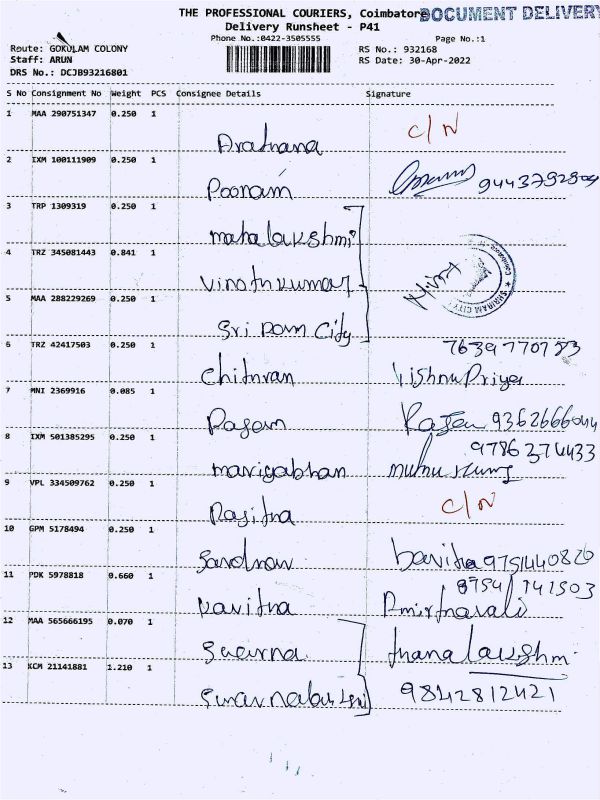 THE PROFESSIONAL COURIERS, Coimbatore
DOCUMENT DELIVERY
Delivery Runsheet - P41
Phone No.:0422-3505555
Page No.:1
Route: GOKULAM COLONY
RS No.: 932168
Staff: ARUN
RS Date: 30-Apr-2022
DRS No.: DCJB93216801
S No Consignment No Weight PCS Consignee Details Signature
1 MAA 290751347 0.250 1
Aratnana C/N
2 IXM 100111909 0.250 1
Poonam 9443792809
3 TRP 1309319 0.250 1
mahalakshmi
4 TRZ 345081443 0.841 1
Vinothkumar
5 MAA 288229269 0.250 1
Sri Ram City SHRIRAM CITY
6 TRZ 42417503 0.250 1
7639770783
Chithran Vishnu Priya
7 MNI 2369916 0.085 1
Rajan 9362666044
8 IXM 501385295 0.250 1
9786374433
mariyabhan
9 VPL 334509762 0.250 1
Rajitha C/N
10 GPM 5178494 0.250 1
9751440820
11 PDK 5978818 0.660 1
8754 141503
Kavitha Amirthavalli
12 MAA 565666195 0.070 1
Swarna thanalakshmi
13 KCM 21141881 1.210 1
9842812421